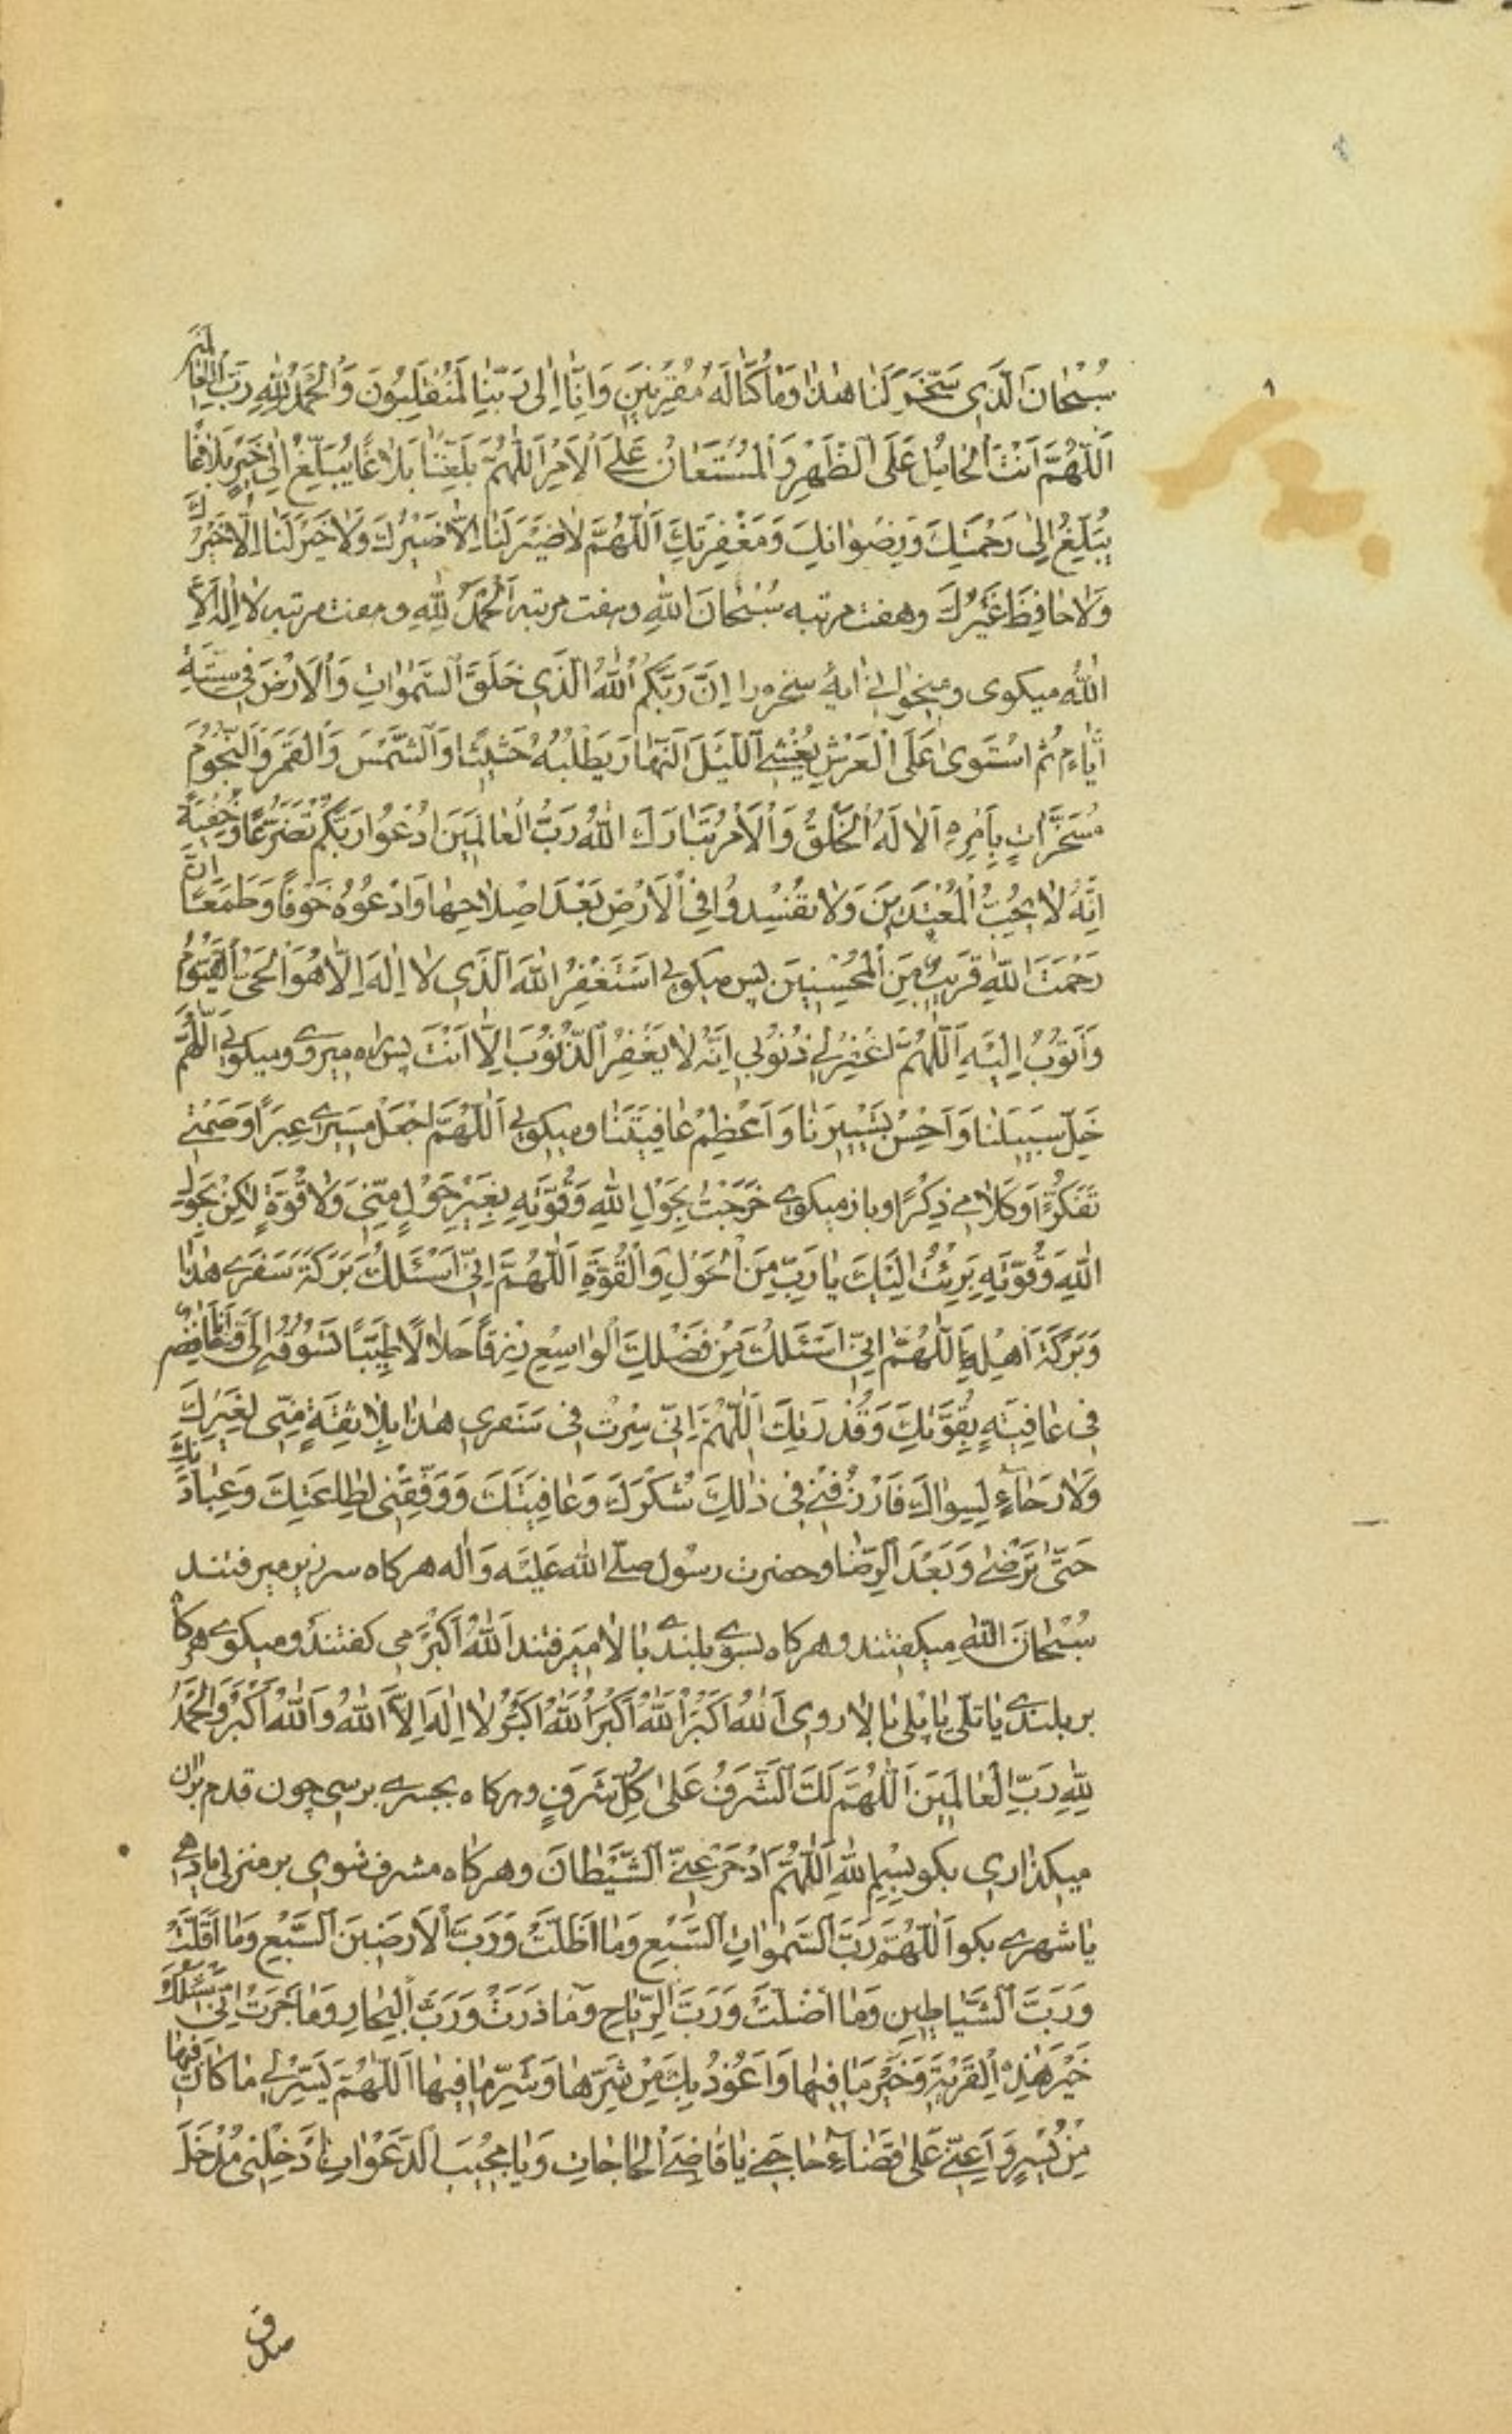 سُبْحانَ الَّذِی سَخَّرَ لَنا هٰذا وَمَا كُنَّا لَهُ مُقْرِنِینَ وَاِنَّا اِلٰی رَبِّنٰا لَمُنْقَلِبُونَ وَالْحَمْدُ لِلّٰهِ رَبِّ الْعالَمین
اَللّٰهُمَّ اَنْتَ الْحامِلُ عَلَی الظَّهْرِ وَالْمُسْتَعانُ عَلَی الْاَمْرِ اَللّٰهُمَّ بَلِّغْنٰا بَلاغًا یُبَلِّغُ اِلٰی خَیْرٍ بَلاغًا
یُبَلِّغُ اِلٰی رَحْمَتِكَ وَرِضْوانِكَ وَمَغْفِرَتِكَ اَللّٰهُمَّ لاضَیْرَ لَنٰا اِلّا ضَیْرُكَ وَلاخَیْرَ لَنٰا اِلّا خَیْرُكَ
وَلاحٰافِظَ غَیْرُكَ وهفت مرتبه سُبْحانَ اللّٰهِ وهفت مرتبه اَلْحَمْدُ لِلّٰهِ وهفت مرتبه لا اِلٰهَ اِلَّا
اللّٰهُ میكوی ومیخوانی آیهٔ سخره را اِنَّ رَبَّكُمُ اللّٰهُ الَّذِی خَلَقَ السَّمٰوٰاتِ وَالْاَرْضَ فِی سِتَّةِ
اَیّٰامٍ ثُمَّ اسْتَوٰی عَلَی الْعَرْشِ یُغْشِی اللَّیْلَ النَّهٰارَ یَطْلُبُهُ حَثِیثًا وَالشَّمْسَ وَالْقَمَرَ وَالنُّجُومَ
مُسَخَّرٰاتٍ بِاَمْرِهِ اَلا لَهُ الْخَلْقُ وَالْاَمْرُ تَبٰارَكَ اللّٰهُ رَبُّ الْعٰالَمِینَ ادْعُوا رَبَّكُمْ تَضَرُّعًا وَخُفْیَةً
اِنَّهُ لا یُحِبُّ الْمُعْتَدِینَ وَلا تُفْسِدُوا فِی الْاَرْضِ بَعْدَ اِصْلاحِهٰا وَادْعُوهُ خَوْفًا وَطَمَعًا اِنَّ
رَحْمَتَ اللّٰهِ قَرِیبٌ مِنَ الْمُحْسِنِینَ پس میكوئی اَسْتَغْفِرُ اللّٰهَ الَّذِی لا اِلٰهَ اِلّا هُوَ الْحَیُّ الْقَیُّومُ
وَاَتُوبُ اِلَیْهِ اَللّٰهُمَّ اغْفِرْ لِی ذُنُوبِی اِنَّهُ لا یَغْفِرُ الذُّنُوبَ اِلّا اَنْتَ پس براه میروی ومیكوئی اَللّٰهُمَّ
خَلِّ سَبِیلَنٰا وَاَحْسِنْ تَسْیِیرَنٰا وَاَعْظِمْ عٰافِیَتَنٰا ومیكوئی اَللّٰهُمَّ اجْعَلْ مَسِیرِی عِبَرًا وَصَمْتِی
تَفَكُّرًا وَكَلامِی ذِكْرًا وباز میكوی خَرَجْتُ بِحَوْلِ اللّٰهِ وَقُوَّتِهِ بِغَیْرِ حَوْلٍ مِنِّی وَلا قُوَّةٍ لٰكِنْ بِحَوْلِ
اللّٰهِ وَقُوَّتِهِ بَرِئْتُ اِلَیْكَ یٰا رَبِّ مِنَ الْحَوْلِ وَالْقُوَّةِ اَللّٰهُمَّ اِنِّی اَسْئَلُكَ بَرَكَةَ سَفَرِی هٰذٰا
وَبَرَكَةَ اَهْلِهِ اَللّٰهُمَّ اِنِّی اَسْئَلُكَ مِنْ فَضْلِكَ الْوٰاسِعِ رِزْقًا حَلالًا طَیِّبًا تَسُوقُهُ اِلَیَّ وَاَنَا خٰائِضٌ
فِی عٰافِیَتِهِ بِقُوَّتِكَ وَقُدْرَتِكَ اَللّٰهُمَّ اِنِّی سِرْتُ فِی سَفَرِی هٰذٰا بِلا ثِقَةٍ مِنِّی لِغَیْرِكَ
وَلا رَجٰاءٍ لِسِوٰاكَ فَارْزُقْنِی فِی ذٰلِكَ شُكْرَكَ وَعٰافِیَتَكَ وَوَفِّقْنِی لِطٰاعَتِكَ وَعِبٰادَتِكَ
حَتّٰی تَرْضٰی وَبَعْدَ الرِّضٰا وحضرت رسُول صلّی الله عَلَیْه وَآله هركاه سرزیر میرفتند
سُبْحٰانَ اللّٰهِ میكفتند وهركاه بسوی بلندی بالا میرفتند اَللّٰهُ اَكْبَرُ می كفتند ومیكوی هركاه
بر بلندی یا تلی یا پلی بالا روی اَللّٰهُ اَكْبَرُ اَللّٰهُ اَكْبَرُ اَللّٰهُ اَكْبَرُ لا اِلٰهَ اِلَّا اللّٰهُ وَاللّٰهُ اَكْبَرُ وَالْحَمْدُ
لِلّٰهِ رَبِّ الْعٰالَمِینَ اَللّٰهُمَّ لَكَ الشَّرَفُ عَلٰی كُلِّ شَرَفٍ وهركاه بجسری برسی چون قدم بران
میكذاری بكو بِسْمِ اللّٰهِ اَللّٰهُمَّ ادْحَرْ عَنِّی الشَّیْطٰانَ وهركاه مشرف شوی بر منزلی یا دهی
یا شهری بكو اَللّٰهُمَّ رَبَّ السَّمٰوٰاتِ السَّبْعِ وَمٰا اَظَلَّتْ وَرَبَّ الْاَرَضِینَ السَّبْعِ وَمٰا اَقَلَّتْ
وَرَبَّ الشَّیٰاطِینِ وَمٰا اَضَلَّتْ وَرَبَّ الرِّیٰاحِ وَمٰا ذَرَتْ وَرَبَّ الْبِحٰارِ وَمٰا جَرَتْ اِنِّی اَسْئَلُكَ
خَیْرَ هٰذِهِ الْقَرْیَةِ وَخَیْرَ مٰا فِیهٰا وَاَعُوذُ بِكَ مِنْ شَرِّهٰا وَشَرِّ مٰا فِیهٰا اَللّٰهُمَّ یَسِّرْ لِی مٰا كٰانَ فِیهٰا
مِنْ یُسْرٍ وَاَعِنِّی عَلٰی قَضٰاءِ حٰاجَتِی یٰا قٰاضِیَ الْحٰاجٰاتِ وَیٰا مُجِیبَ الدَّعَوٰاتِ اَدْخِلْنِی مُدْخَلَ
صدق